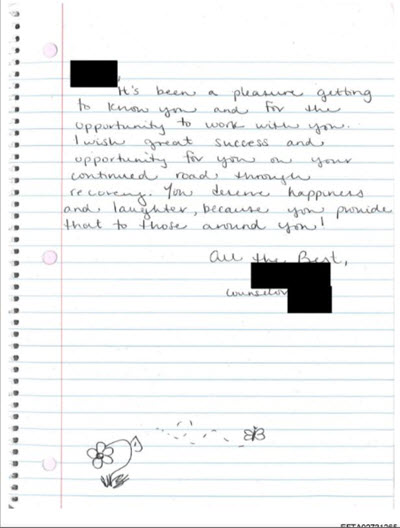 It's been a pleasure getting
to know you and for the
opportunity to work with you.
I wish great success and
opportunity for you on your
continued road through
recovery. You deserve happiness
and laughter, because you provide
that to those around you!
All the Best,
counselor